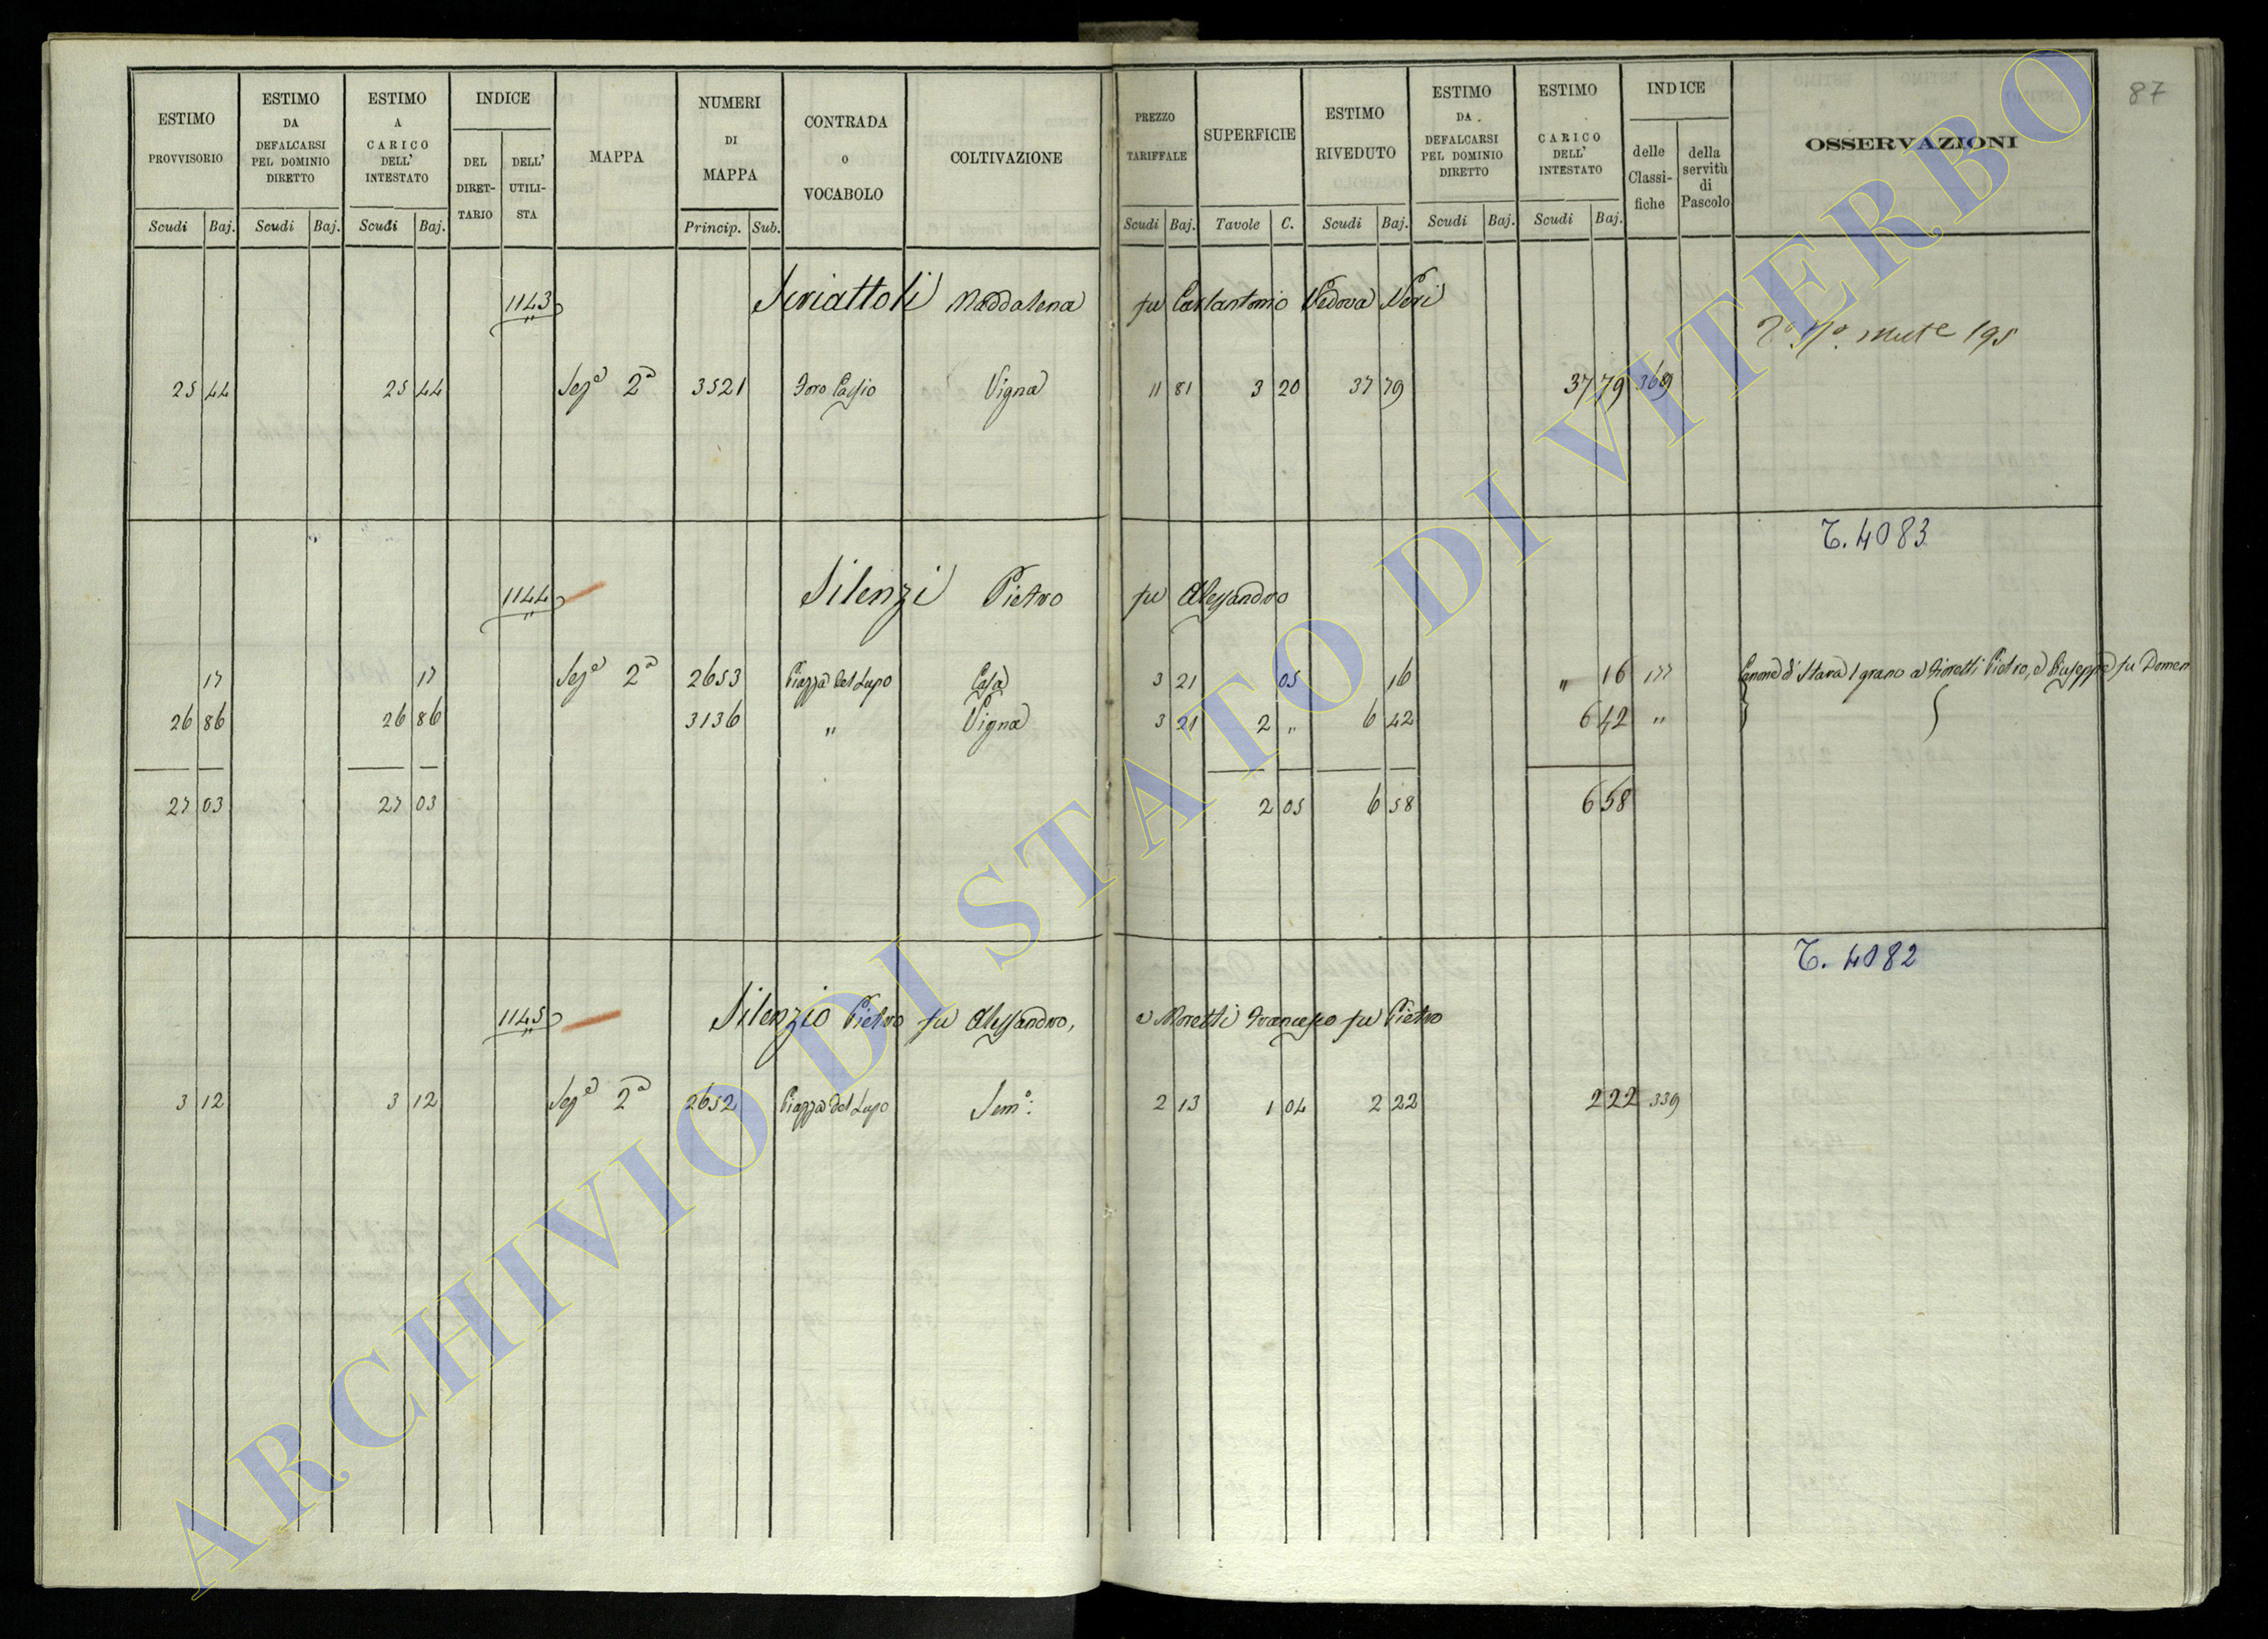 87
ESTIMO PROVVISORIO
ESTIMO DA DEFALCARSI PEL DOMINIO DIRETTO
ESTIMO A CARICO DELL' INTESTATO
INDICE
DEL DIRET-TARIO
DELL' UTILI-STA
MAPPA
NUMERI DI MAPPA
CONTRADA O VOCABOLO
COLTIVAZIONE
PREZZO TARIFFALE
SUPERFICIE
ESTIMO RIVEDUTO
ESTIMO DA DEFALCARSI PEL DOMINIO DIRETTO
ESTIMO CARICO DELL' INTESTATO
INDICE
delle Classi-fiche
della servitù di Pascolo
OSSERVAZIONI
Scudi Baj. Scudi Baj. Scudi Baj. Princip. Sub. Scudi Baj. Tavole C. Scudi Baj. Scudi Baj. Scudi Baj.
1143 Scriattoli Maddalena fu Carlantonio Vedova Neri
mute 195
25 44 25 44 Seze 2a 3521 Foro Cassio Vigna 11 81 3 20 37 79 37 79 369
T. 4083
1144 Silenzi Pietro fu Alessandro
17 17 Seze 2a 2653 Piazza del Lupo Casa 3 21 05 16 " 16 177 Canone di Stara 1 grano a Fioretti Pietro, e Giuseppe fu Domen
26 86 26 86 3136 " Vigna 3 21 2 " 6 42 6 42 "
27 03 27 03 2 05 6 58 6 58
T. 4082
1145 Silenzio Pietro fu Alessandro, e Moretti Francesco fu Pietro
3 12 3 12 Seze 2a 2652 Piazza del Lupo Semo: 2 13 1 04 2 22 2 22 339
ARCHIVIO DI STATO DI VITERBO